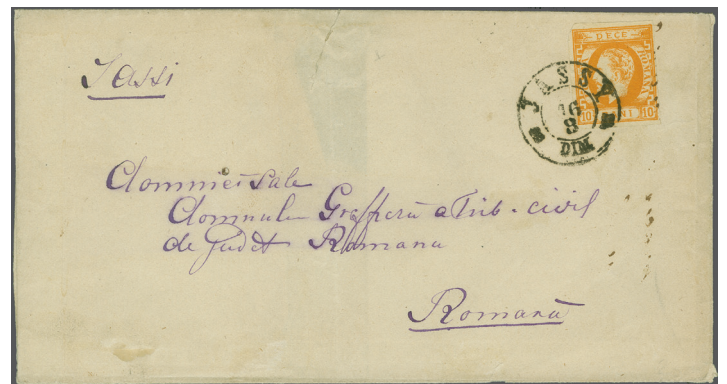 Iassi
POSTA ROMANA
DECE
10 BANI 10
JASSY
16
8
DIM.
Domniei Sale
Domnului Grefieru a Trib. civil
de Judet Romanu
Romanŭ